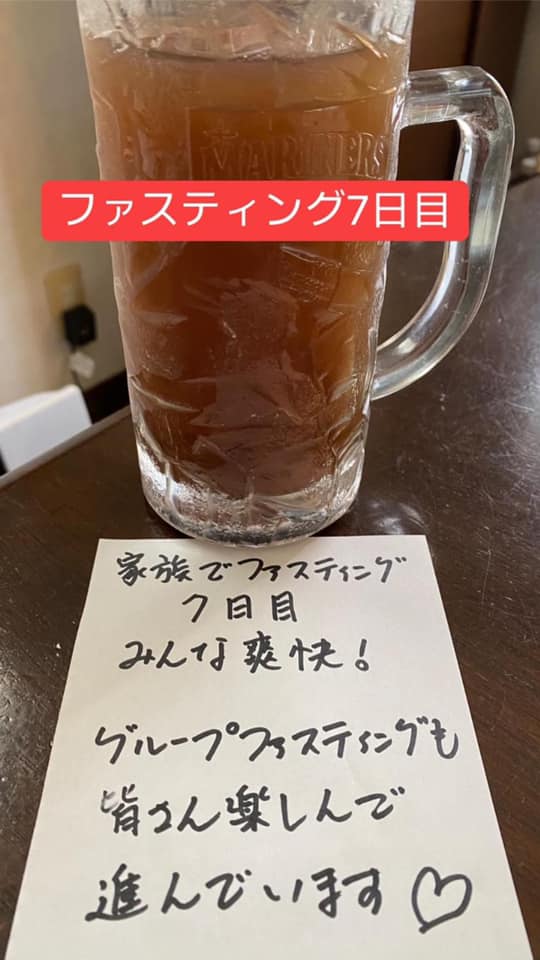 MARINERS
ファスティング7日目
家族でファスティング
7日目
みんな爽快！
グループファスティングも
皆さん楽しんで
進んでいます♡